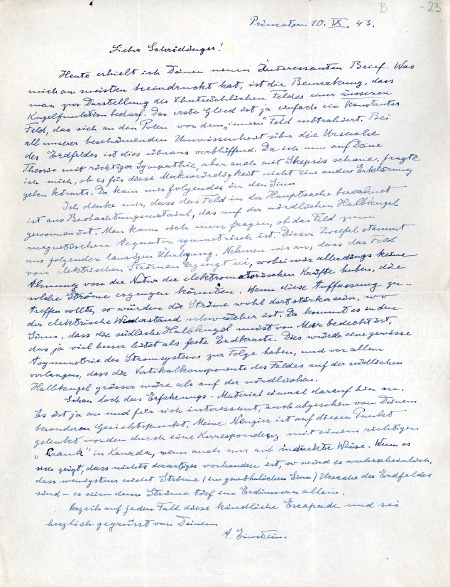 B -23
Princeton. 10. IX. 43.
Lieber Schrödinger!
Heute erhielt ich Deinen neuen interessanten Brief. Was
mich am meisten beeindruckt hat, ist die Bemerkung, dass
man zur Darstellung des thatsächlichen Feldes einer äusseren
Kugelfunktion bedarf. Das erste Glied ist ja einfach ein konstantes
Feld, das sich an den Polen von dem "inneren" Feld subtrahiert. Bei
all unserer beschämenden Unwissenheit über die Ursache
des Erdfeldes ist dies überaus verblüffend. Da ich nun auf Deine
Theorie mit richtiger Sympathie, aber auch mit Skepsis schaue, fragte
ich mich, ob es für diese Merkwürdigkeit nicht eine andere Erklärung
geben könnte. Da kam mir folgendes in den Sinn
Ich denke mir, dass das Feld in der Hauptsache
ist aus Beobachtungsmaterial, das auf der nördlichen Halbkugel
gewonnen ist. Man kann sich nun fragen, ob das Feld zum
magnetischen Aequator symmetrisch ist. Dieser Zweifel stammt
aus folgender Überlegung. Nehmen wir an, dass das Feld
von elektrischen Strömen erzeugt sei, wobei wir allerdings keine
Ahnung von der Natur der elektromotorischen Kräfte haben, die
solche Ströme erzeugen könnten. Wenn diese Auffassung zu-
treffen sollte, so würden die Ströme wohl dort stärker sein, wo
der elektrische Widerstand schwächer ist. Da kommt es in den
Sinn, dass die südliche Halbkugel meist von Meer bedeckt ist,
das ja viel besser leitet als feste Erdkruste. Dies würde eine gewisse
Asymmetrie des Stromsystems zur Folge haben, und vor allem
verlangen, dass die Vertikalkomponente des Feldes auf der südlichen
Halbkugel grösser wäre als auf der nördlichen.
Schau doch das Erfahrungs-Material einmal darauf hin an.
Es ist ja an und für sich interessant, auch abgesehen von Deinem
besonderen Gesichtspunkt. Meine Neugier ist auf diesen Punkt
gelenkt worden durch eine Korrespondenz mit einem richtigen
"Crank" in Kanada, wenn auch nur auf indirekte Weise. Wenn es
sich zeigt, dass nichts derartiges vorhanden ist, so wird es unwahrscheinlich,
dass wenigstens nicht Ströme (im gewöhnlichen Sinn) Ursache des Erdfeldes
sind – es seien denn Ströme tief im Erdinnern allein.
Verzeih auf jeden Fall diese kindliche Escapade und sei
herzlich gegrüsst von Deinem
A. Einstein.